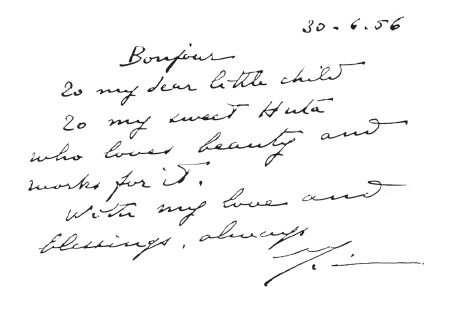 30-6-56
Bonjour
To my dear little child
To my sweet Huta
who loves beauty and
works for it.
With my love and
blessings, always